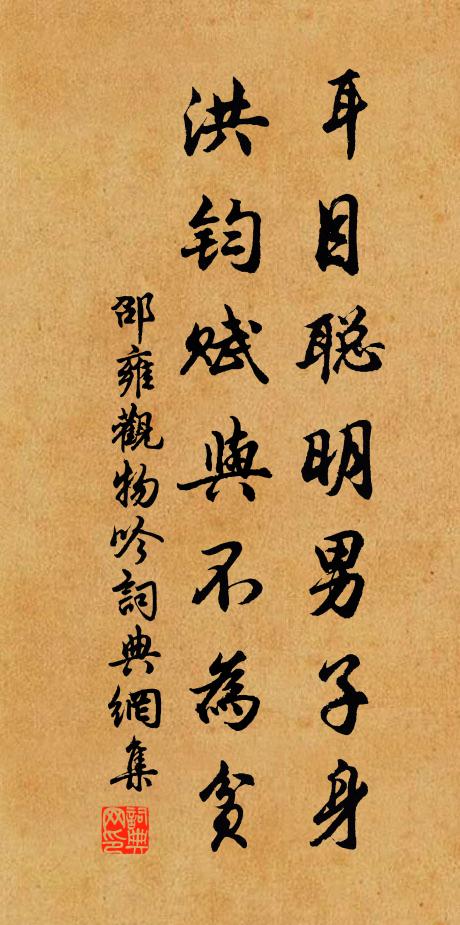 耳目聪明男子身
洪钧赋與不為贫
邵雍觀物吟詞典網集
詞典网印